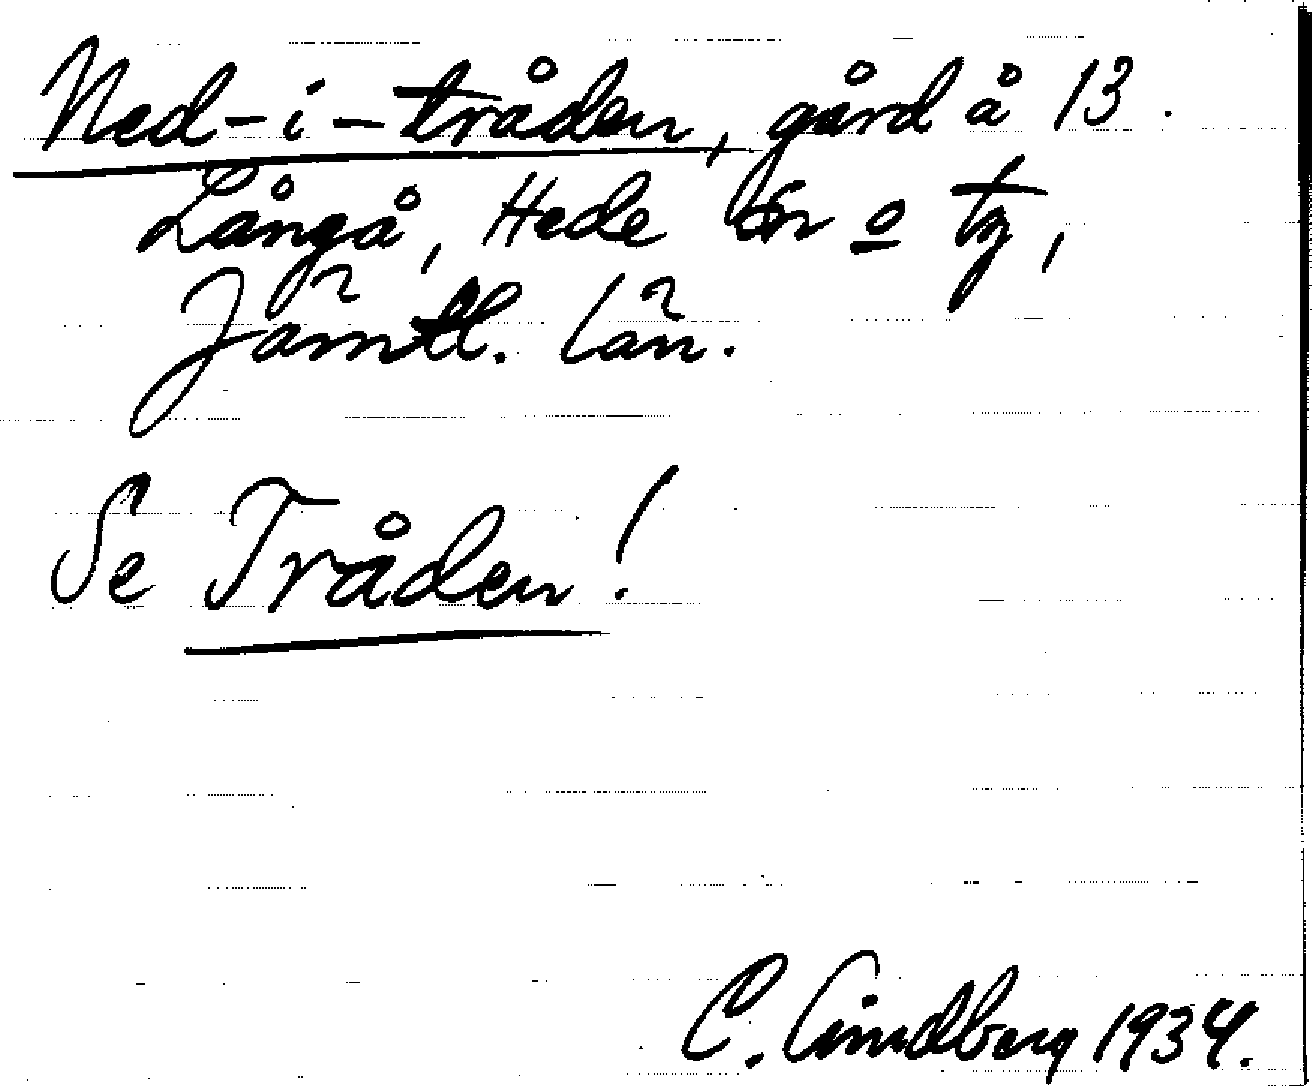 Ned-i-tråden, gård å 13.
Långå, Hede sn o tg,
Jämtl. län.
Se Tråden!
C. Lindberg 1934.